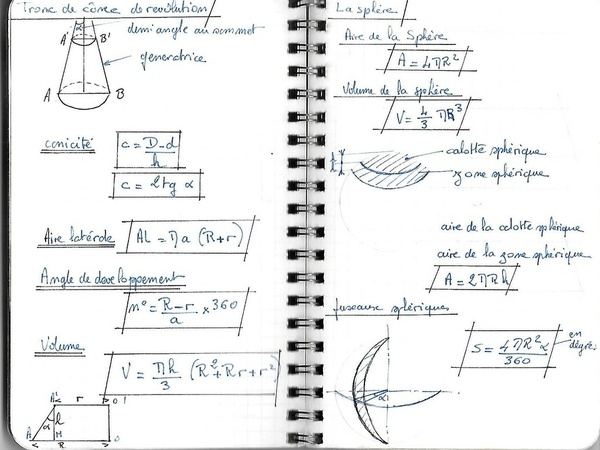 Tronc de cône de révolution
α
demi angle au sommet
A' B'
generatrice
A B
conicité
c = D-d / h
c = 2 tg α
Aire latérale
AL = Πa (R+r)
Angle de développement
n° = R-r / a × 360
Volume
V = Πh / 3 (R²+Rr+r²)
A' r O'
h
α
A H O
R
La sphère
Aire de la Sphère
A = 4ΠR²
Volume de la sphère
V = 4/3 ΠR³
h
calotte sphérique
zone sphérique
aire de la calotte sphérique
aire de la zone sphérique
A = 2ΠRh
fuseaux sphériques
S = 4ΠR²α / 360
en
degrés
α